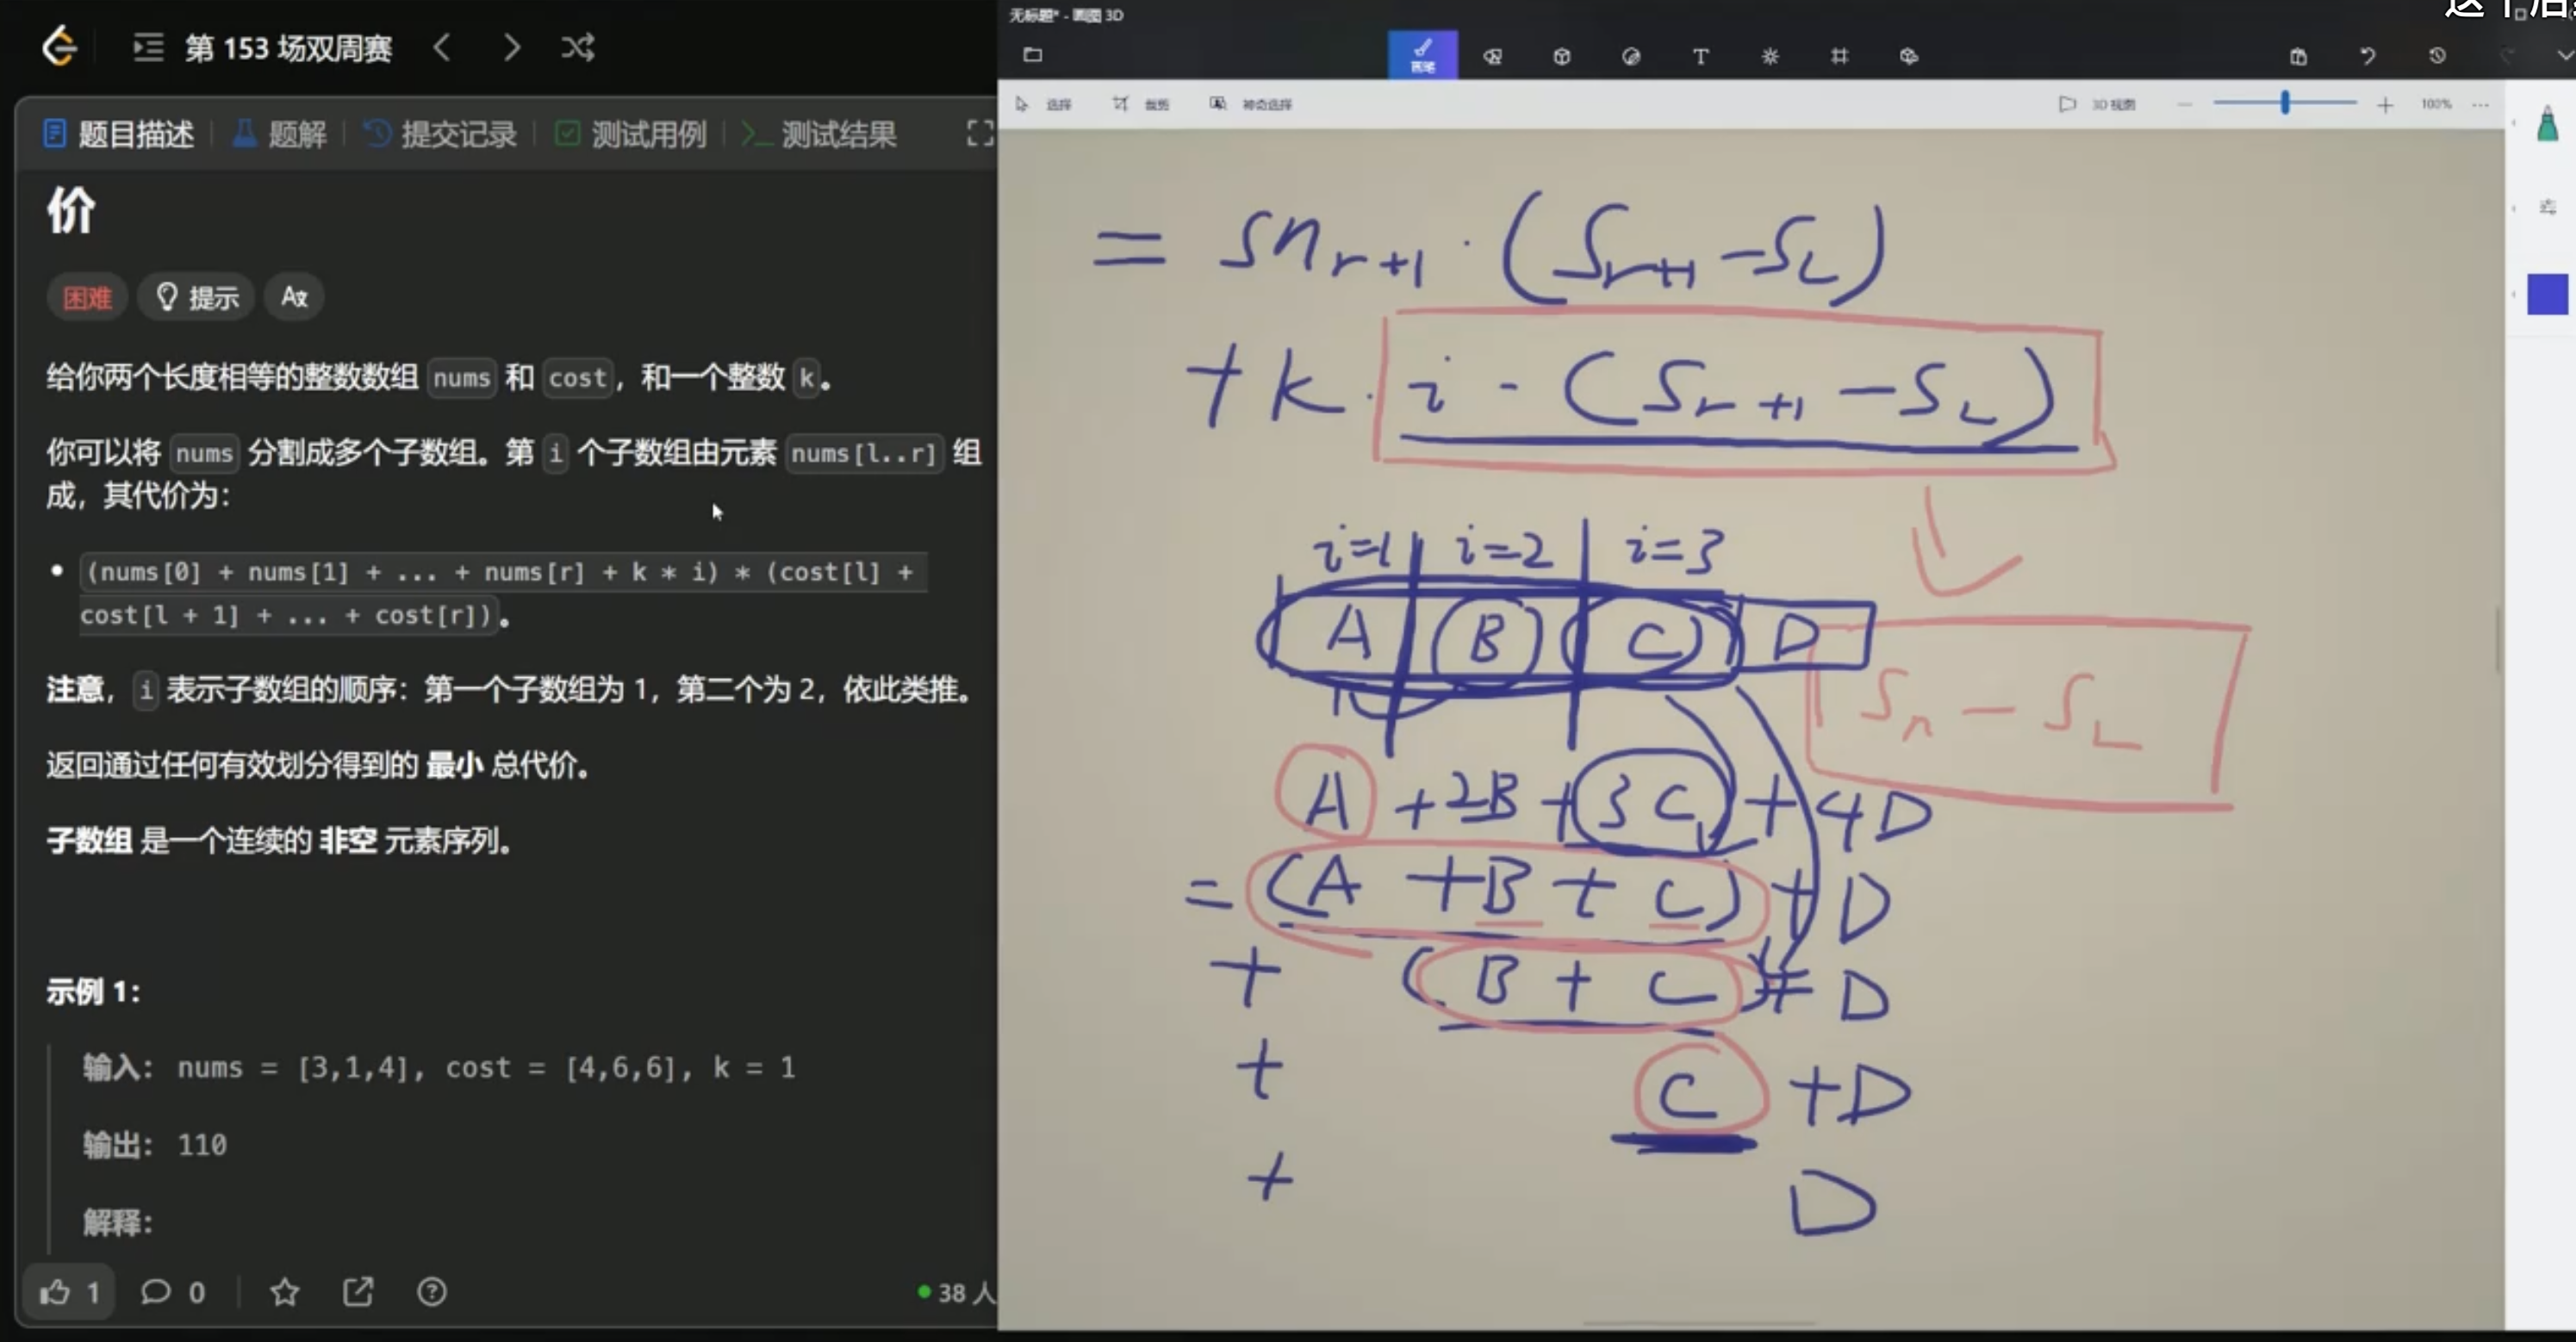 第 153 场双周赛
题目描述 题解 提交记录 测试用例 测试结果
价
困难 提示
给你两个长度相等的整数数组 nums 和 cost，和一个整数 k。
你可以将 nums 分割成多个子数组。第 i 个子数组由元素 nums[l..r] 组
成，其代价为：
• (nums[0] + nums[1] + ... + nums[r] + k * i) * (cost[l] +
cost[l + 1] + ... + cost[r])。
注意，i 表示子数组的顺序：第一个子数组为 1，第二个为 2，依此类推。
返回通过任何有效划分得到的 最小 总代价。
子数组 是一个连续的 非空 元素序列。
示例 1：
输入： nums = [3,1,4], cost = [4,6,6], k = 1
输出： 110
解释：
1 0 38 人
无标题* - 画图 3D
画笔
选择 裁剪 神奇选择 3D 视图 100%
= Sn r+1 · (S r+1 - S L)
+ k · i · (S r+1 - S L)
i=1 i=2 i=3
A B C D
S n - S L
A + 2B + 3C + 4D
= (A + B + C) + D
+ (B + C) + D
+ C + D
+ D